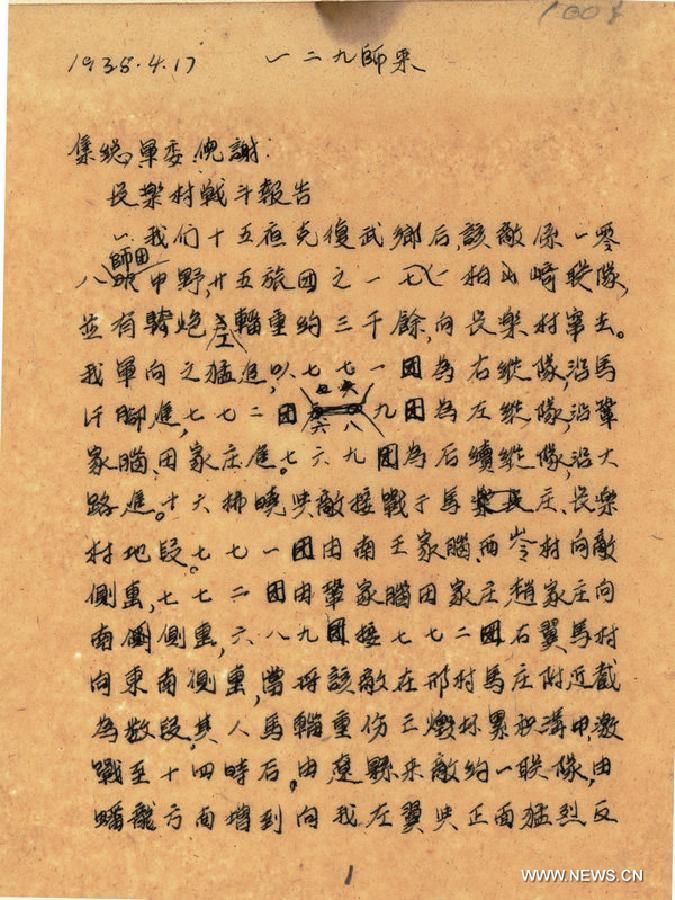 1938.4.17 一二九師来
集总、軍委、倪謝:
長樂村戰斗報告
一、我们十五夜克復武鄉后,該敵係一零
八師团 甲野,廿五旅团之一七 柏山崎联隊,
並有騎炮工輜重約三千餘,向長樂村窜去。
我軍向之猛進,以七七一团為右縱隊,沿馬
脚進,七七二团 六八九团為左縱隊,沿鞏
家腦、田家庄進。七六九团為后續縱隊,沿大
路進。十六拂曉與敵接戰于馬庄、長樂
村地段。七七一团由南王家腦、西岺村向敵
側擊,七七二团由鞏家腦田家庄趙家庄向
南側擊,六八九团接七七二团右翼馬村
向東南側擊,當将該敵在邢村馬庄附近截
為数段,其人馬輜重伤亡燬坏累积溝中,激
戰至十四時后,由遼縣来敵約一联隊,由
蟠龍方面增到向我左翼與正面猛烈反
1
WWW.NEWS.CN